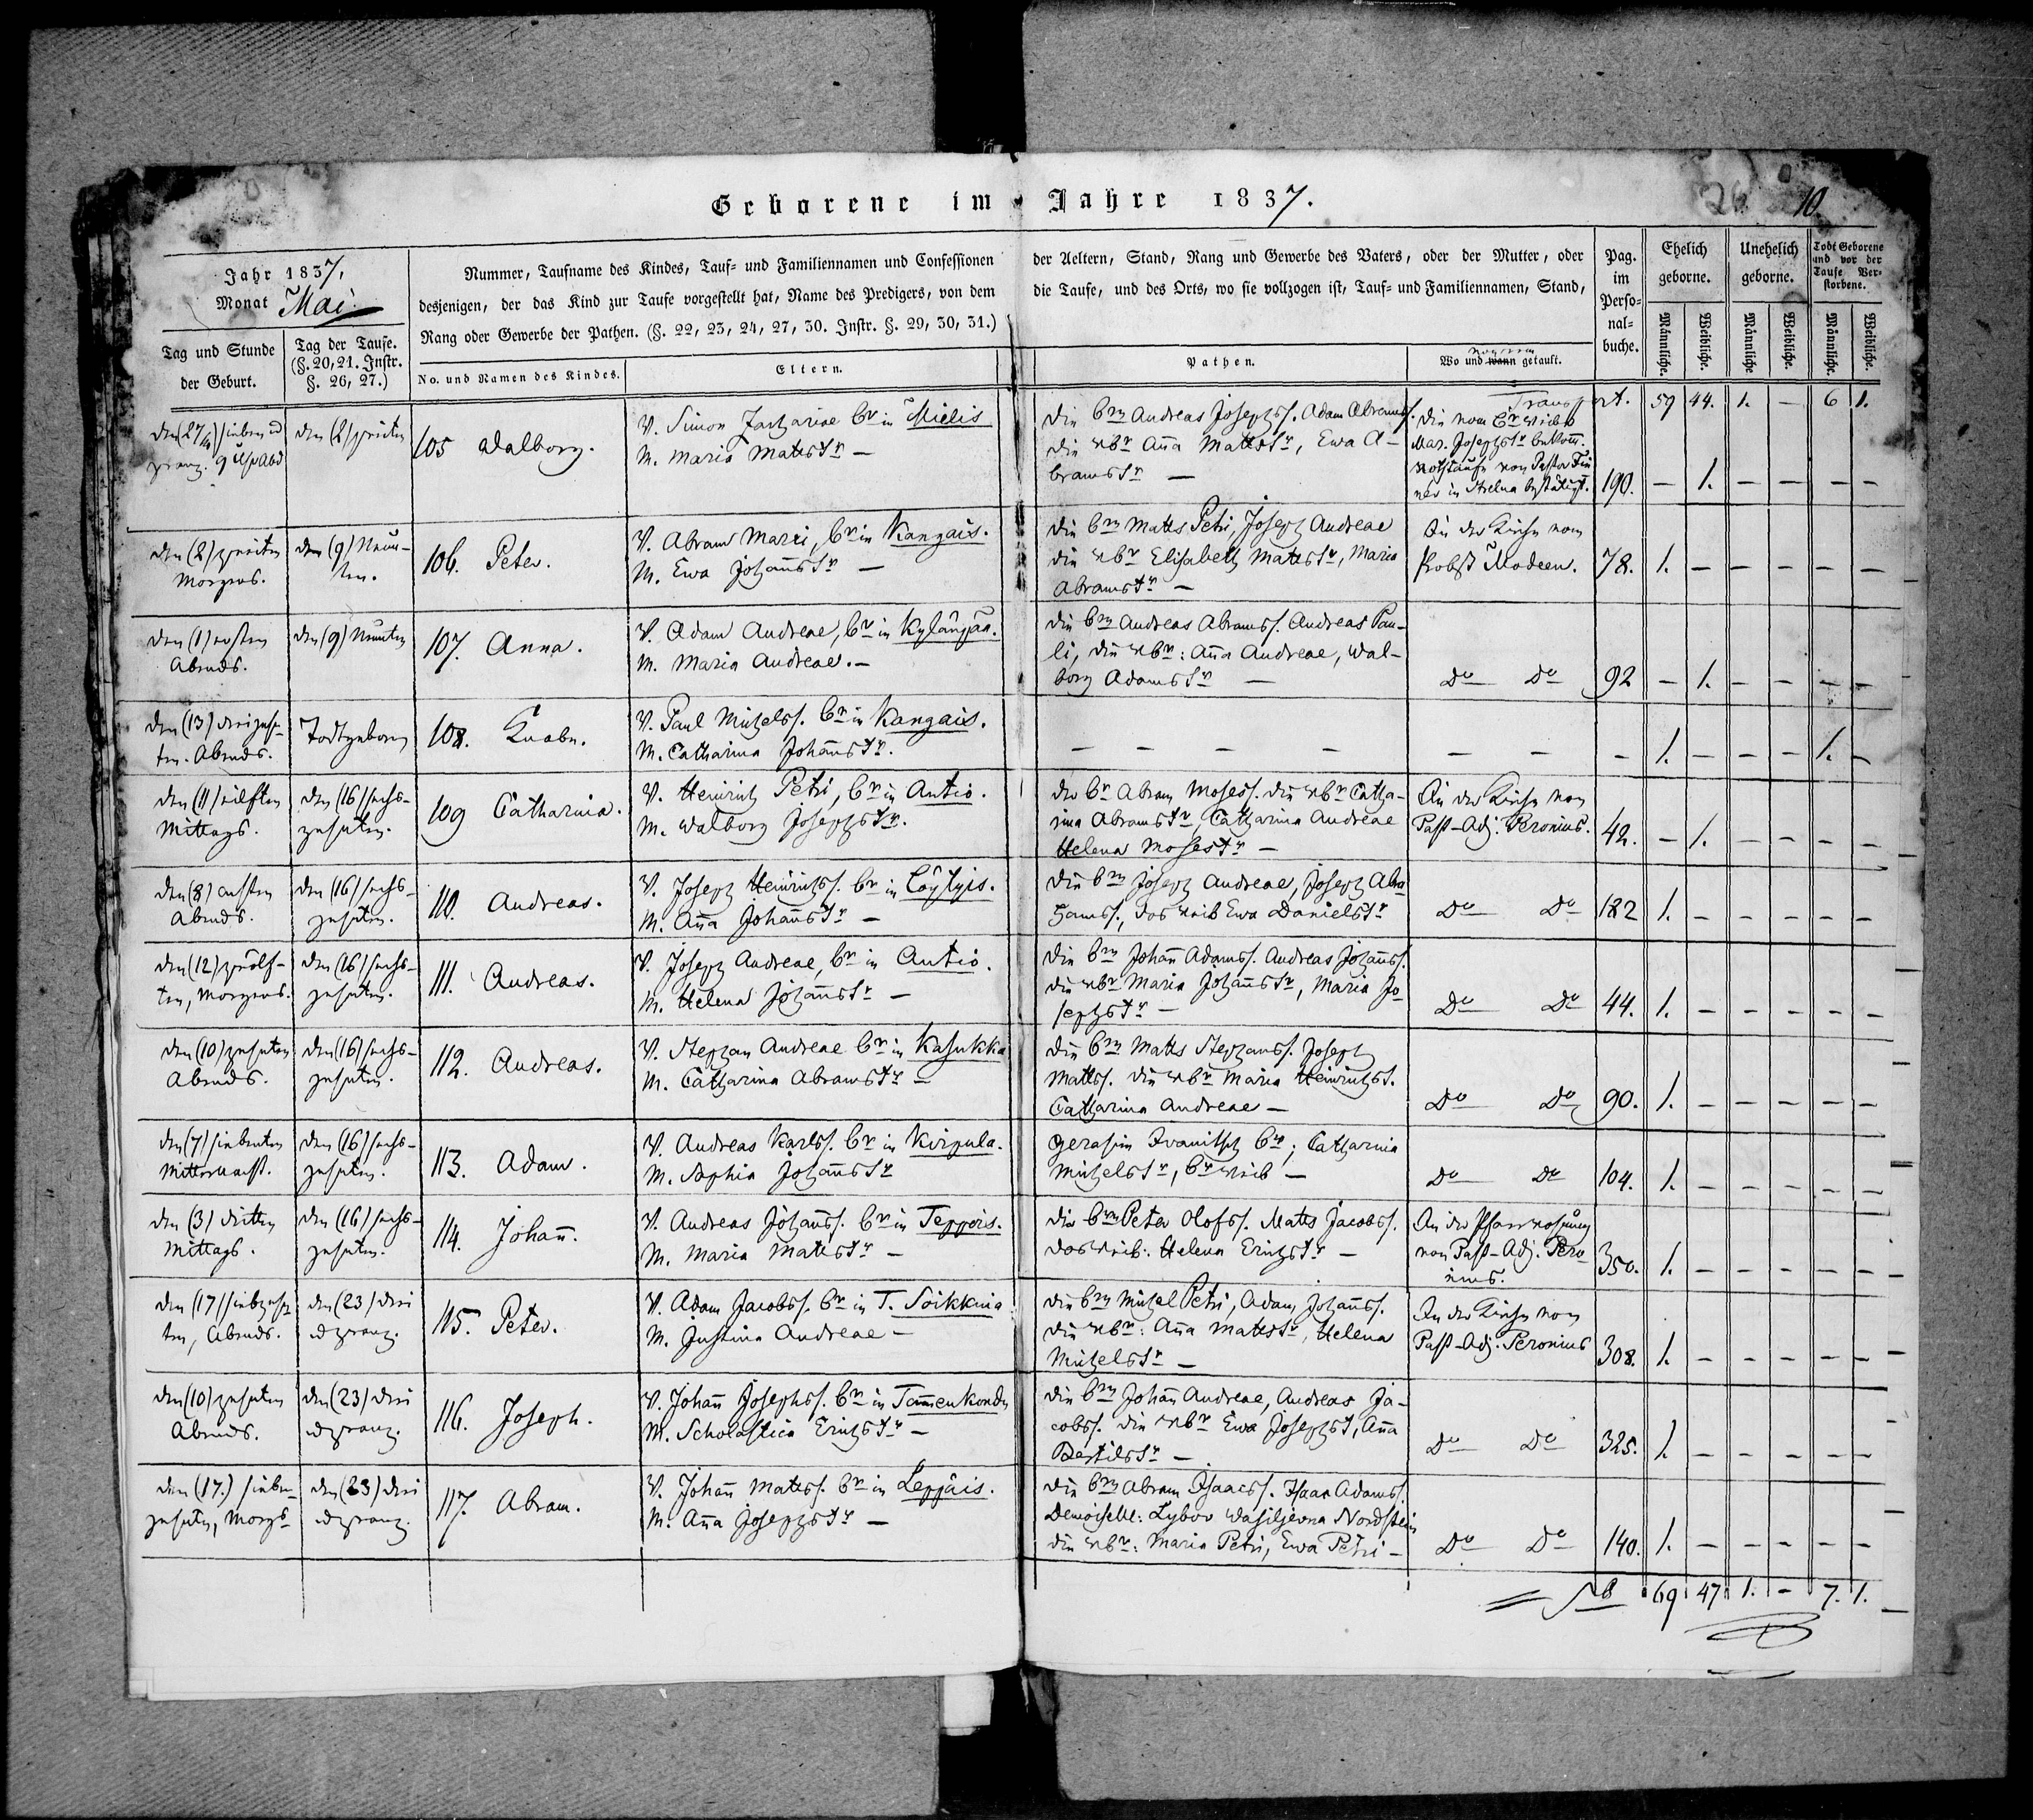 Geborene im Jahre 1837.
26 10.
Jahr 1837,
Monat Mai
Tag und Stunde der Geburt.
Tag der Taufe. (§. 20, 21. Instr. §. 26, 27.)
Nummer, Taufname des Kindes, Tauf- und Familiennamen und Confessionen der Aeltern, Stand, Rang und Gewerbe des Vaters, oder der Mutter, oder
desjenigen, der das Kind zur Taufe vorgestellt hat, Name des Predigers, von dem die Taufe, und des Orts, wo sie vollzogen ist, Tauf- und Familiennamen, Stand,
Rang oder Gewerbe der Pathen. (§. 22, 23, 24, 27, 30. Instr. §. 29, 30, 31.)
No. und Namen des Kindes.
Eltern.
Pathen.
Wo und wann getauft.
von wem
Pag. im Perso- nal- buche.
Ehelich geborne.
Unehelich geborne.
Todt Geborene und vor der Taufe Ver- storbene.
Männliche. Weibliche. Männliche. Weibliche. Männliche. Weibliche.
Transport. 59 44. 1. — 6 1.
den (27/4) sieben u
zwanz. 9 Uhr Abd
den (2) zweiten
105 Walborg.
V. Simon Zachariae br in Mielis
M. Maria Mattstr —
Die brn Andreas Josephs. Adam Abramss.
die wbr Anna Mattstr, Ewa A-
bramstr —
Die vom br Weibe
Mar. Josephstr bekom.
Nothtaufe von Pastor
in Strelna bestätigt.
190. — 1. — — — —
den (2) zweiten
Morgens.
den (9) Neun-
ten.
106. Peter.
V. Abram Marci, br in Kangais.
M. Ewa Johannstr —
Die brn Matts Petri, Joseph Andreae
die wbr Elisabeth Mattstr, Maria
Abramstr —
In der Kirche vom
Probst Modeen.
78. 1. — — — — —
den (1) ersten
Abends.
den (9) Neunten
107. Anna.
V. Adam Andreae, br in Kylänpää.
M. Maria Andreae. —
Die brn Andreas Abramss. Andreas Pau-
li, die wbr: Anna Andreae, Wal-
borg Adamstr —
Do Do
92 — 1. — — — —
den (13) dreizehn-
ten. Abends.
Todtgeboren
108. Knabe.
V. Paul Michelss. br in Kangais.
M. Catharina Johannstr.
— — — — — —
— 1. — — — 1. —
den (11) eilften
Mittags.
den (16) sechs-
zehnten.
109 Catharina.
V. Heinrich Petri, br in Autio.
M. Walborg Josephstr.
der br Abram Mosess. die wbr Catha-
rina Abramstr, Catharina Andreae
Helena Mosestr —
In der Kirche von
Past-Adj. Peronius.
42. — 1. — — — —
den (8) achten
Abends.
den (16) sechs-
zehnten.
110. Andreas.
V. Joseph Heinrichss. br in Löylyis.
M. Anna Johannstr —
Die brn Joseph Andreae, Joseph Abra
hamss., das Weib Ewa Danielstr
Do Do
182 1. — — — — —
den (12) zwölf-
ten, Morgens.
den (16) sechs-
zehnten.
111. Andreas.
V. Joseph Andreae, br in Autio.
M. Helena Johannstr —
Die brn Johann Adamss. Andreas Johannss.
die wbr Maria Johannstr, Maria Jo
sephstr —
Do Do
44. 1. — — — — —
den (10) zehnten
Abends.
den (16) sechs-
zehnten.
112. Andreas.
V. Stephan Andreae br in Kasukka
M. Catharina Abramstr —
Die brn Matts Stephanss. Joseph
Mattss. die wbr Maria Heinrichst.
Catharina Andreae —
Do Do
90. 1. — — — — —
den (7) siebenten
Mitternacht.
den (16) sechs-
zehnten.
113. Adam.
V. Andreas Karlss. br in Kirpula.
M. Sophia Johannstr
Gerasim Iwanitsch br; Catharina
Michelstr, br Weib —
Do Do
104. 1. — — — — —
den (3) dritten
Mittags.
den (16) sechs-
zehnten.
114. Johann.
V. Andreas Johannss. br in Teppois.
M. Maria Mattstr —
Die brn Peter Olofss. Matts Jacobss.
das Weib: Helena Erichstr —
In der Pfarrwohnung
von Past-Adj. Pero
nius.
350. 1. — — — — —
den (17) siebzehn
ten, Abends.
den (23) drei
u zwanz.
115. Peter.
V. Adam Jacobss. br in T. Soikkina
M. Justina Andreae —
Die brn Michel Petri, Adam Johannss.
die wbr: Anna Mattstr, Helena
Michelstr —
In der Kirche vom
Past-Adj. Peronius
308. 1. — — — — —
den (10) zehnten
Abends.
den (23) drei
u zwanz.
116. Joseph.
V. Johann Josephss. br in Tammenkondu
M. Scholastica Erichstr —
Die brn Johann Andreae, Andreas Ja-
cobss. die wbr Ewa Josephst, Anna
Bertilstr —
Do Do
325. 1. — — — — —
den (17.) sieben
zehnten, Morgs
den (23) drei
u zwanz.
117. Abram.
V. Johann Mattss. br in Leppäis.
M. Anna Josephstr —
Die brn Abram Isaacss. Isaac Adamss.
Demoiselle: Lybov Wasiljevna Nordstein
die wbr: Maria Petri, Ewa Petri —
Do Do
140. 1. — — — — —
69 47 1. — 7. 1.